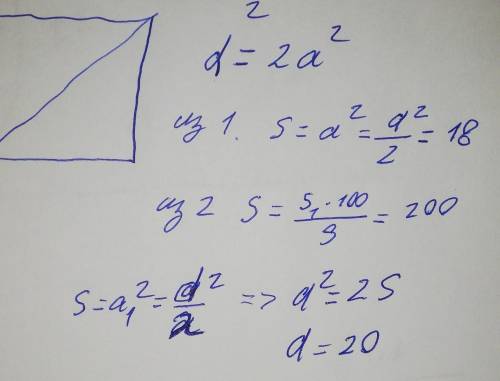 d² = 2a²
из 1. S = a² = d²/2 = 18
из 2 S = S₁·100/9 = 200
S = a₁² = d²/2 => d² = 2S
d = 20